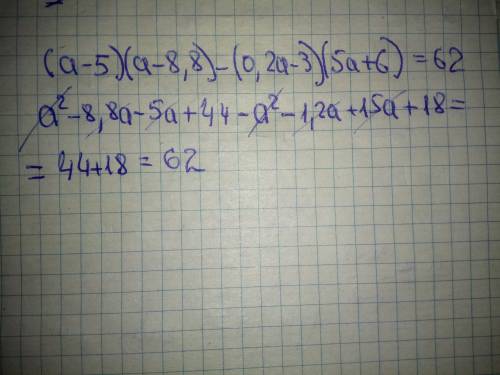 (a-5)(a-8,8)-(0,2a-3)(5a+6)=62
a²-8,8a-5a+44-a²-1,2a+15a+18=
=44+18=62